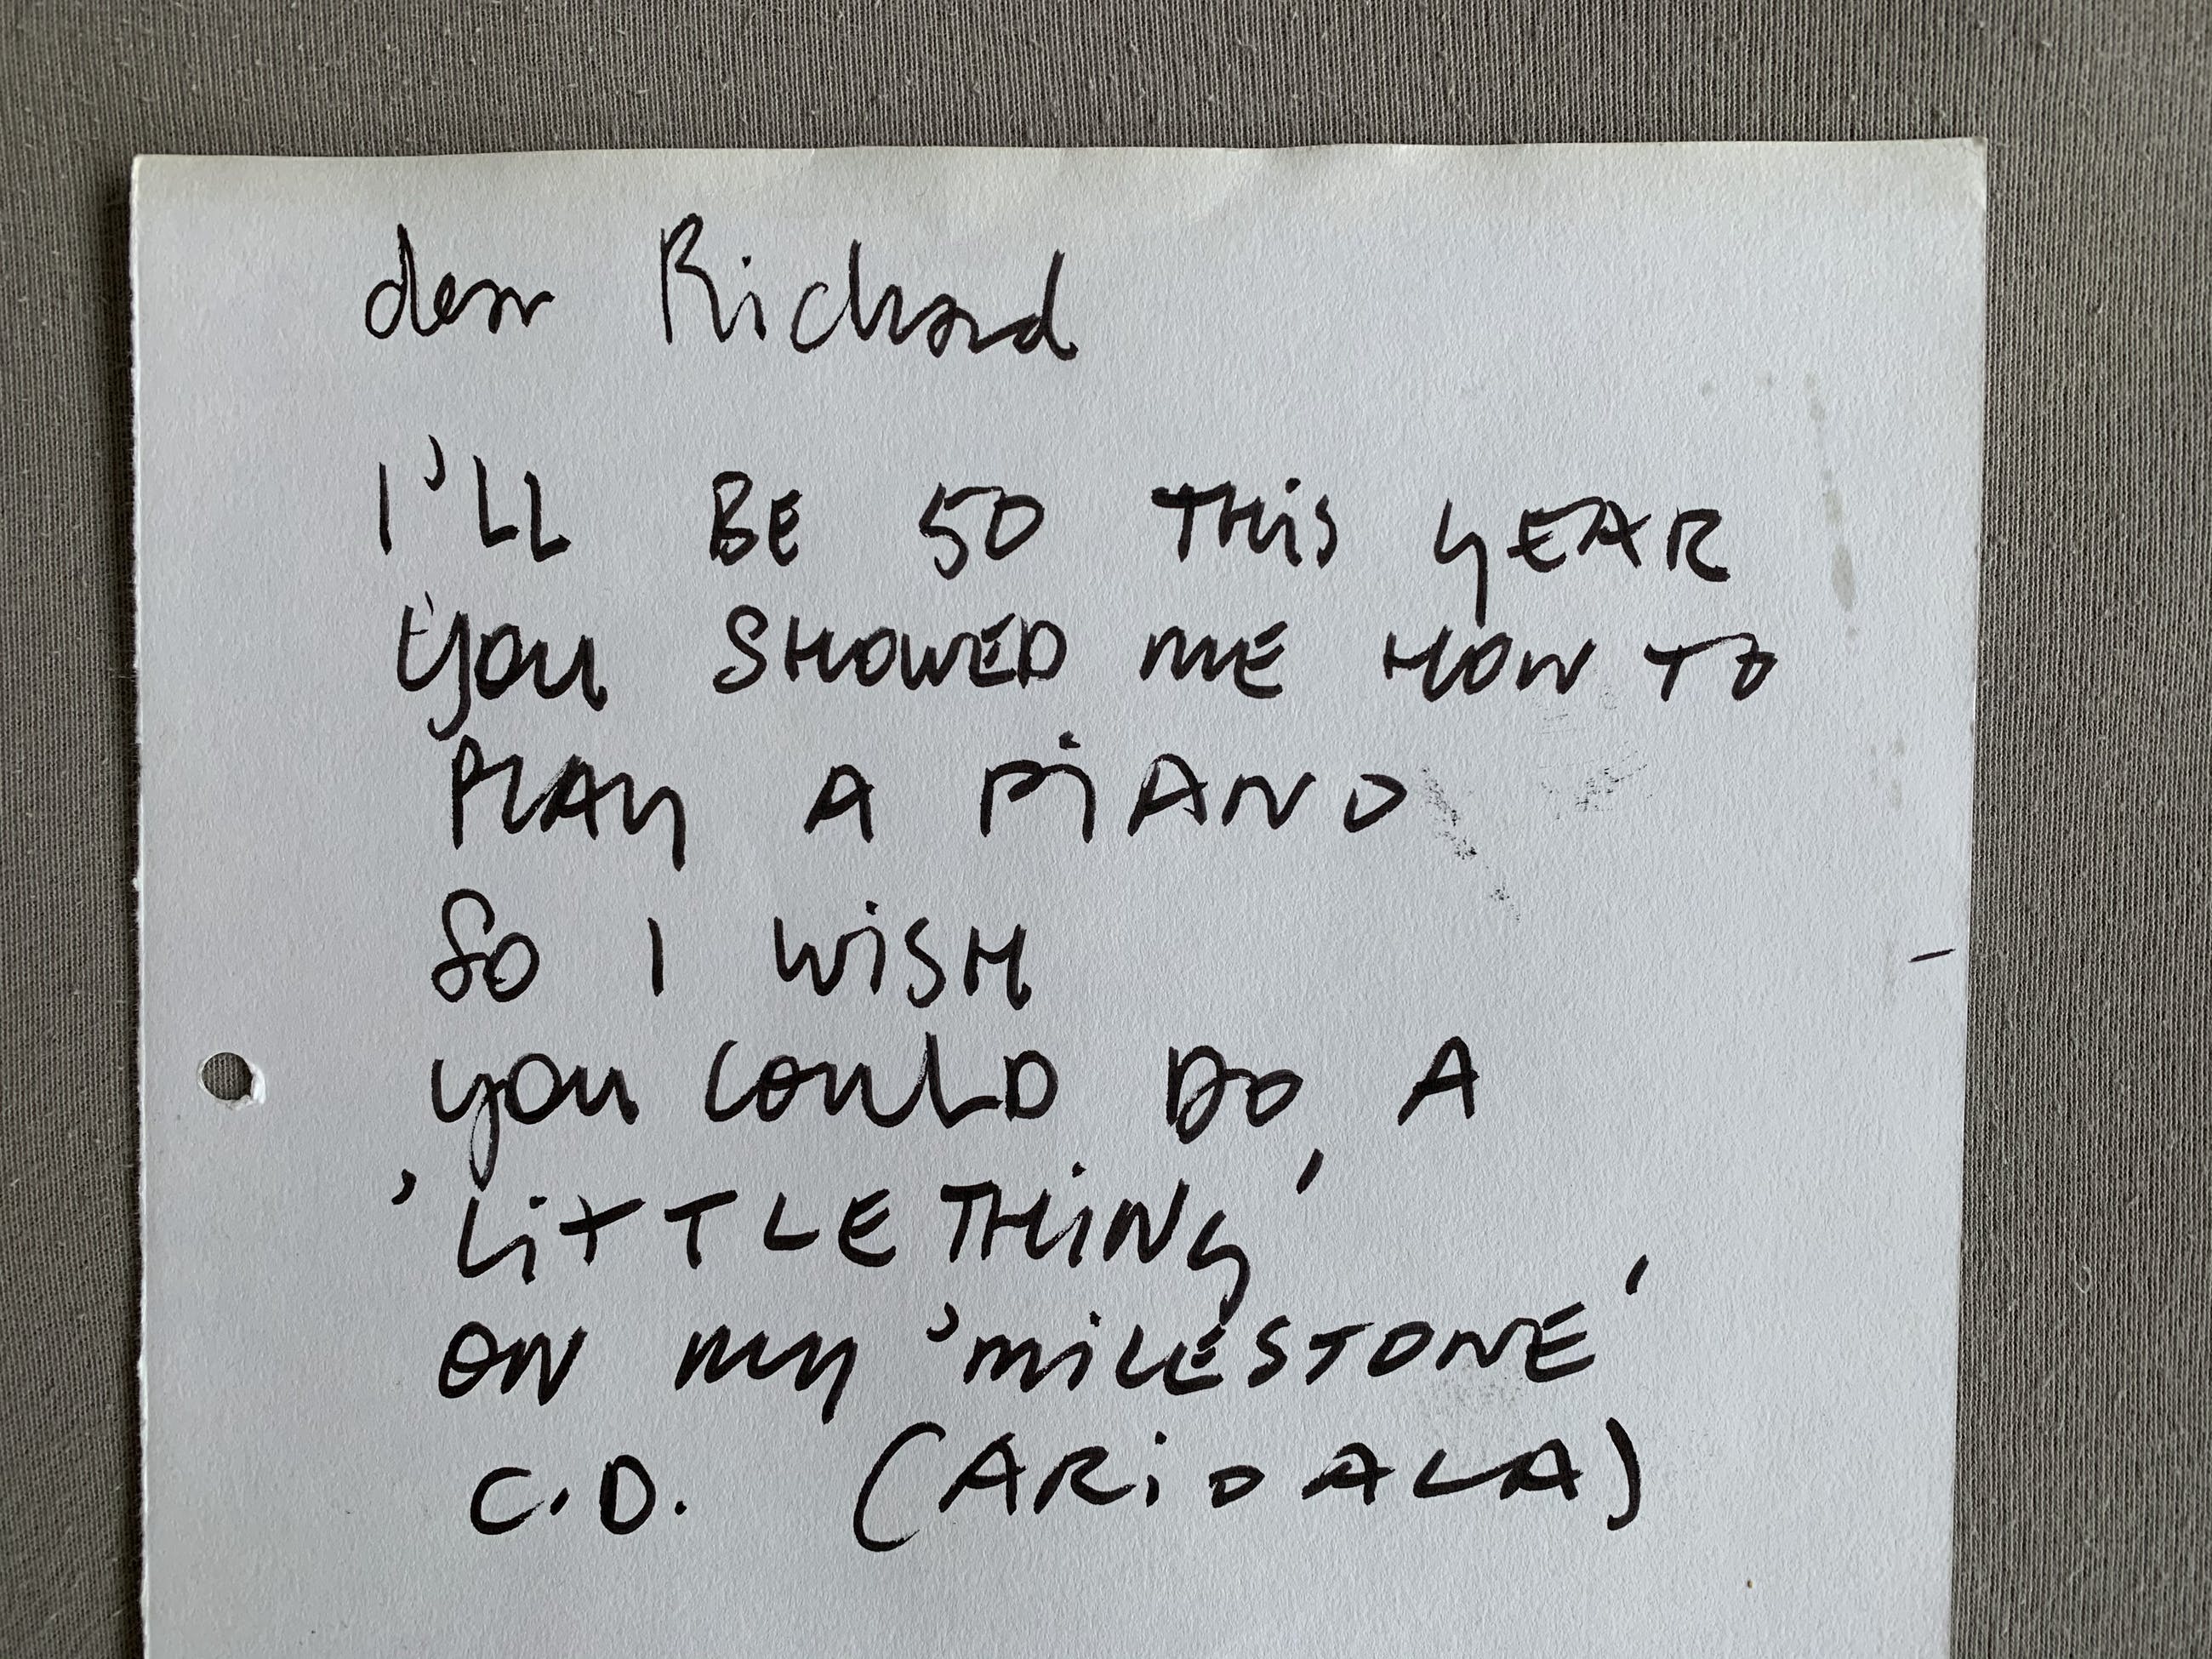 dear Richard
I'LL BE 50 THiS yEAR
you SHOWED ME HOW TO
PLAy A PiANO
So I WiSH
you COULD DO A
'LiTTLE THiNG'
ON My 'MiLESTONE'
C.D. (ARiOALA)